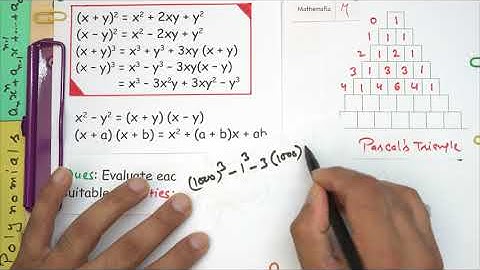 Polynomials
(x + y)² = x² + 2xy + y²
(x − y)² = x² − 2xy + y²
(x + y)³ = x³ + y³ + 3xy (x + y)
(x − y)³ = x³ − y³ − 3xy(x − y)
= x³ − 3x²y + 3xy² − y³
x² − y² = (x + y) (x − y)
(x + a) (x + b) = x² + (a + b)x + ab
ues: Evaluate each
suitable
ties:
(1000)³ − 1³ − 3(1000)
Mathematics
0 1
1 1 1
2 1 2 1
3 1 3 3 1
4 1 4 6 4 1
Pascal's Triangle